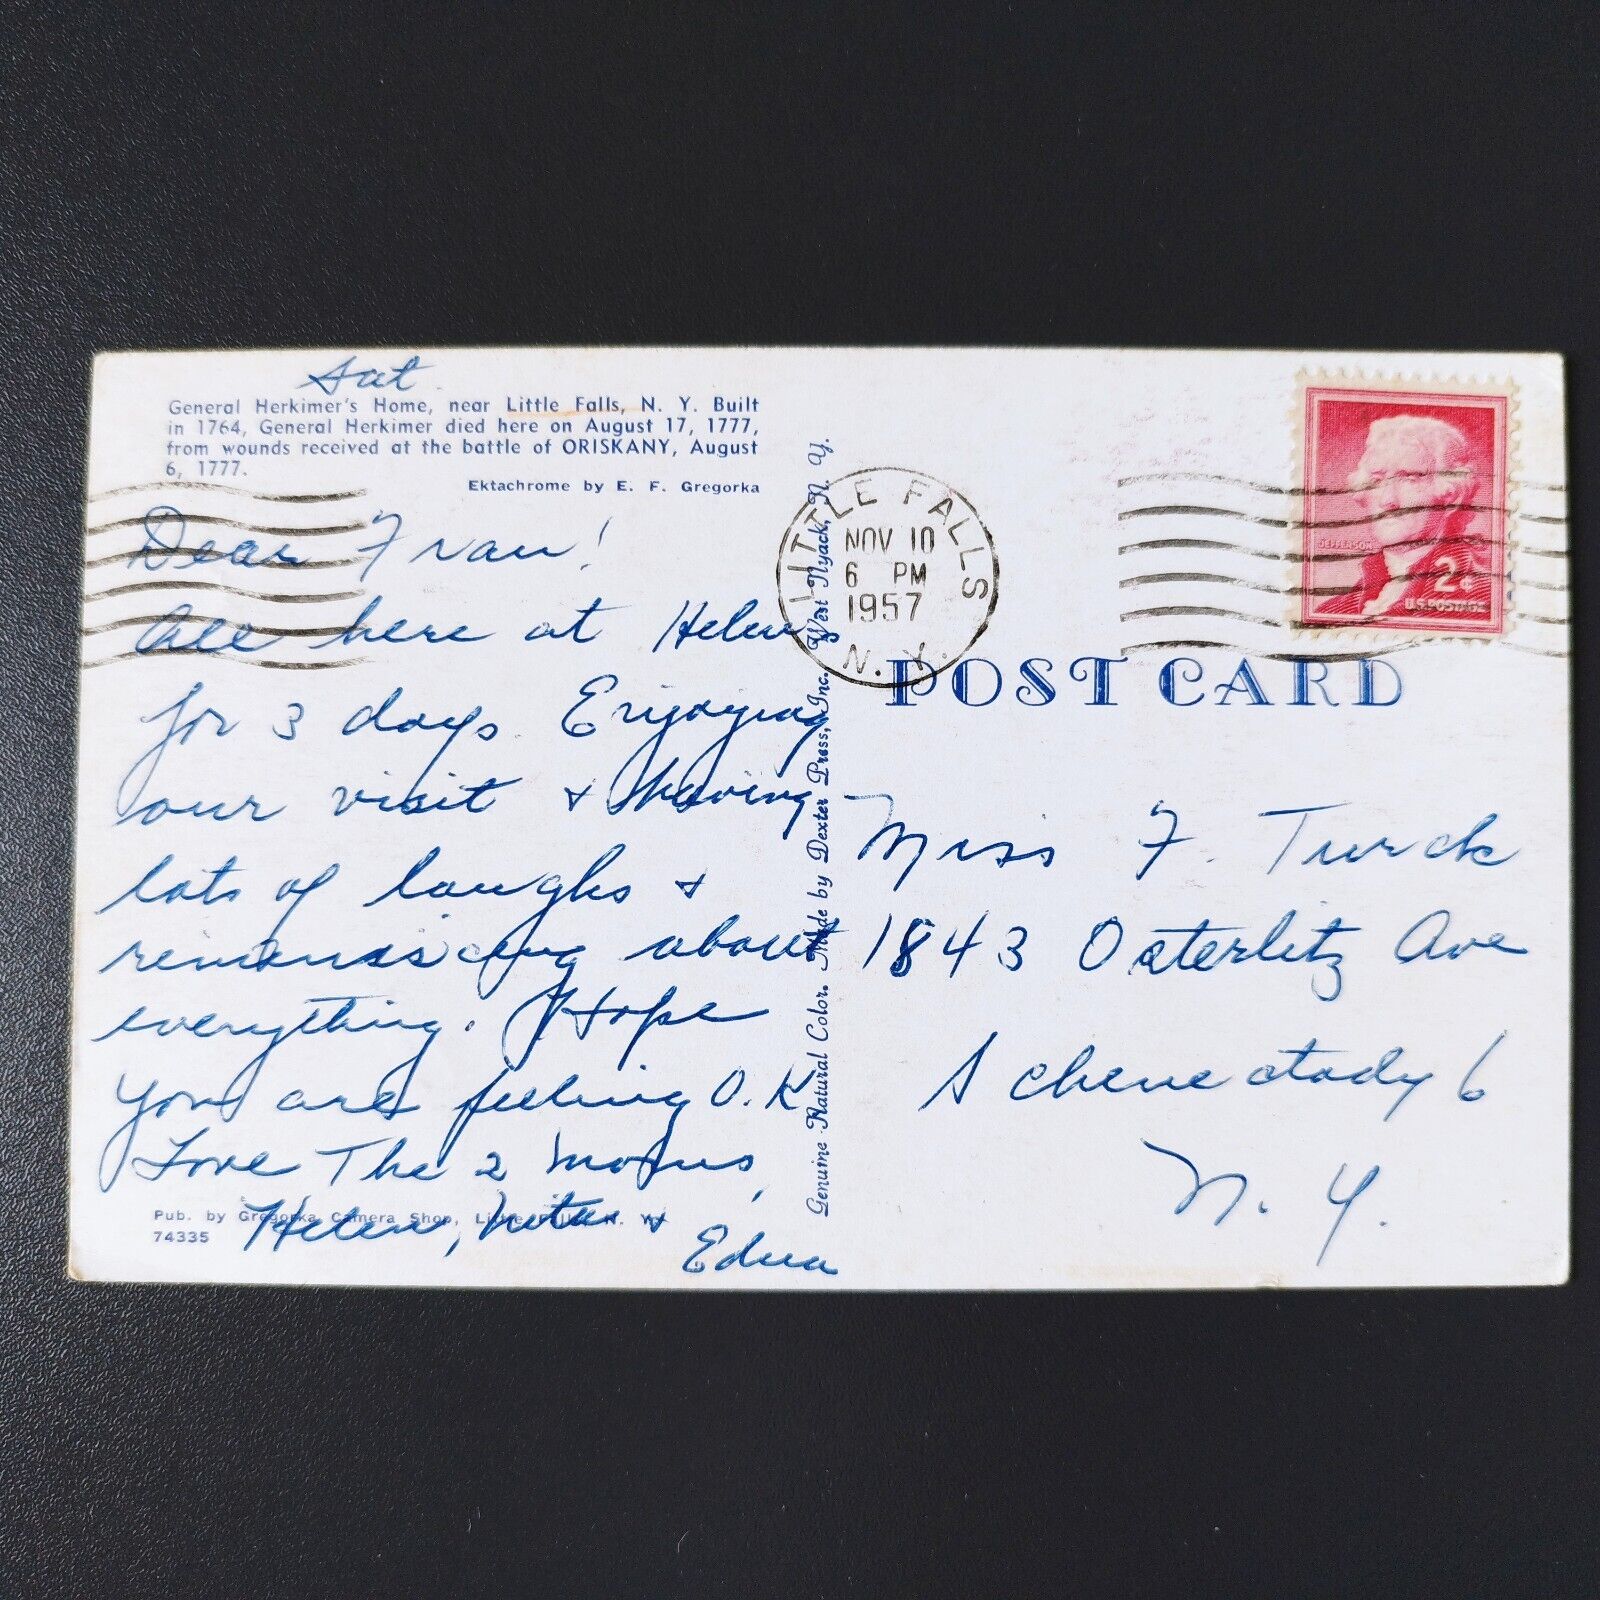 Sat.
General Herkimer's Home, near Little Falls, N. Y. Built
in 1764, General Herkimer died here on August 17, 1777,
from wounds received at the battle of ORISKANY, August
6, 1777.
Ektachrome by E. F. Gregorka
Dear Fran!
All here at Helen
for 3 days. Enjoying
our visit & having
lots of laughs &
about
everything. Hope
you are feeling O.K
Love The 2 Moms,
Helen, &
Edna
Pub. by Gregorka Camera Shop, Little Falls, N. Y.
74335
Genuine Natural Color. Made by Dexter Press, Inc., West Nyack, N. Y.
LITTLE FALLS
NOV 10
6 PM
1957
N. Y.
JEFFERSON
2¢
U.S. POSTAGE
POST CARD
Miss F. Turck
1843 Osterlitz Ave
Schenectady 6
N. Y.